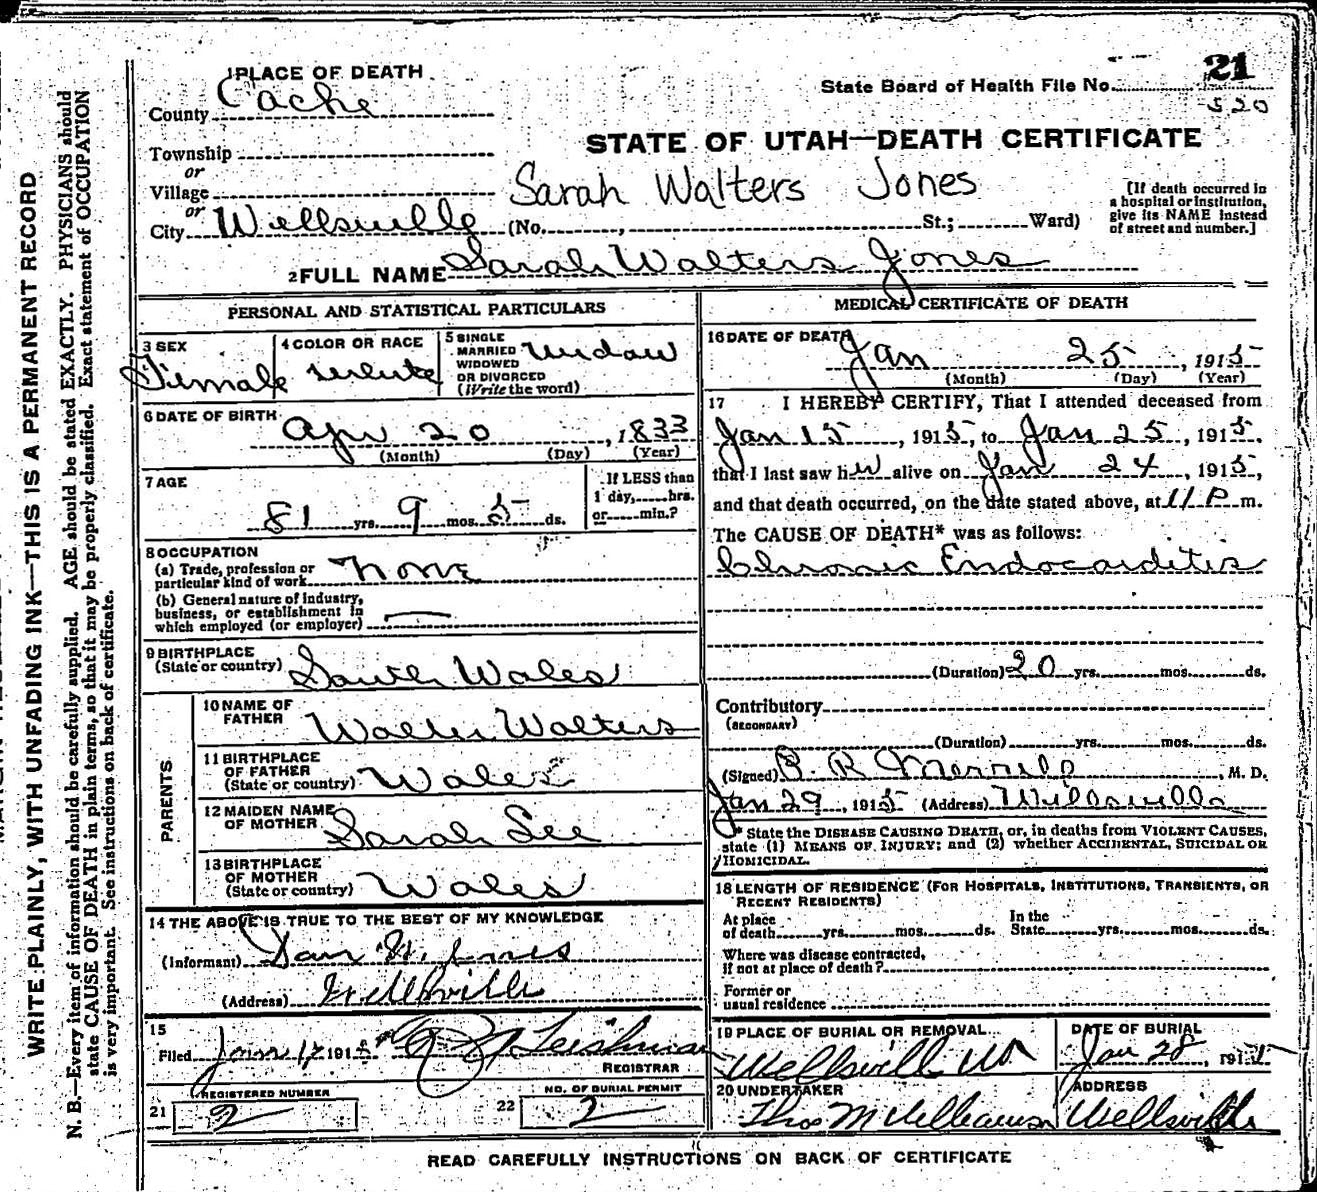 WRITE PLAINLY, WITH UNFADING INK—THIS IS A PERMANENT RECORD
N. B.—Every item of information should be carefully supplied. AGE should be stated EXACTLY. PHYSICIANS should
state CAUSE OF DEATH in plain terms, so that it may be properly classified. Exact statement of OCCUPATION
is very important. See instructions on back of certificate.
1 PLACE OF DEATH
County Cache
Township
or
Village
or
City Wellsville (No. , St.; Ward)
State Board of Health File No. 21
520
STATE OF UTAH—DEATH CERTIFICATE
Sarah Walters Jones
[If death occurred in
a hospital or institution,
give its NAME instead
of street and number.]
2 FULL NAME Sarah Walters Jones
PERSONAL AND STATISTICAL PARTICULARS
3 SEX
Female
4 COLOR OR RACE
White
5 SINGLE
MARRIED
WIDOWED
OR DIVORCED
(Write the word)
Widow
6 DATE OF BIRTH
Apr 20, 1833
(Month) (Day) (Year)
7 AGE
81 yrs. 9 mos. 5 ds.
If LESS than
1 day, hrs.
or min.?
8 OCCUPATION
(a) Trade, profession or
particular kind of work None
(b) General nature of industry,
business, or establishment in
which employed (or employer) —
9 BIRTHPLACE
(State or country) South Wales
PARENTS
10 NAME OF
FATHER Walter Walters
11 BIRTHPLACE
OF FATHER
(State or country) Wales
12 MAIDEN NAME
OF MOTHER Sarah See
13 BIRTHPLACE
OF MOTHER
(State or country) Wales
14 THE ABOVE IS TRUE TO THE BEST OF MY KNOWLEDGE
(Informant) Dan W. Jones
(Address) Wellsville
15
Filed Jan 1915 Leishman
REGISTRAR
REGISTERED NUMBER
21 2
NO. OF BURIAL PERMIT
22 2
MEDICAL CERTIFICATE OF DEATH
16 DATE OF DEATH
Jan 25, 1915
(Month) (Day) (Year)
17 I HEREBY CERTIFY, That I attended deceased from
Jan 15, 1915, to Jan 25, 1915,
that I last saw her alive on Jan 24, 1915,
and that death occurred, on the date stated above, at 11 P m.
The CAUSE OF DEATH* was as follows:
Chronic Endocarditis
(Duration) 20 yrs. mos. ds.
Contributory
(SECONDARY)
(Duration) yrs. mos. ds.
(Signed) R Merrill, M. D.
Jan 29, 1915 (Address) Wellsville
* State the DISEASE CAUSING DEATH, or, in deaths from VIOLENT CAUSES,
state (1) MEANS OF INJURY; and (2) whether ACCIDENTAL, SUICIDAL OR
HOMICIDAL.
18 LENGTH OF RESIDENCE (FOR HOSPITALS, INSTITUTIONS, TRANSIENTS, OR
RECENT RESIDENTS)
At place
of death yrs. mos. ds.
In the
State yrs. mos. ds.
Where was disease contracted,
if not at place of death?
Former or
usual residence
19 PLACE OF BURIAL OR REMOVAL
Wellsville Ut
DATE OF BURIAL
Jan 28, 1915
20 UNDERTAKER
Thos M Williamson
ADDRESS
Wellsville
READ CAREFULLY INSTRUCTIONS ON BACK OF CERTIFICATE